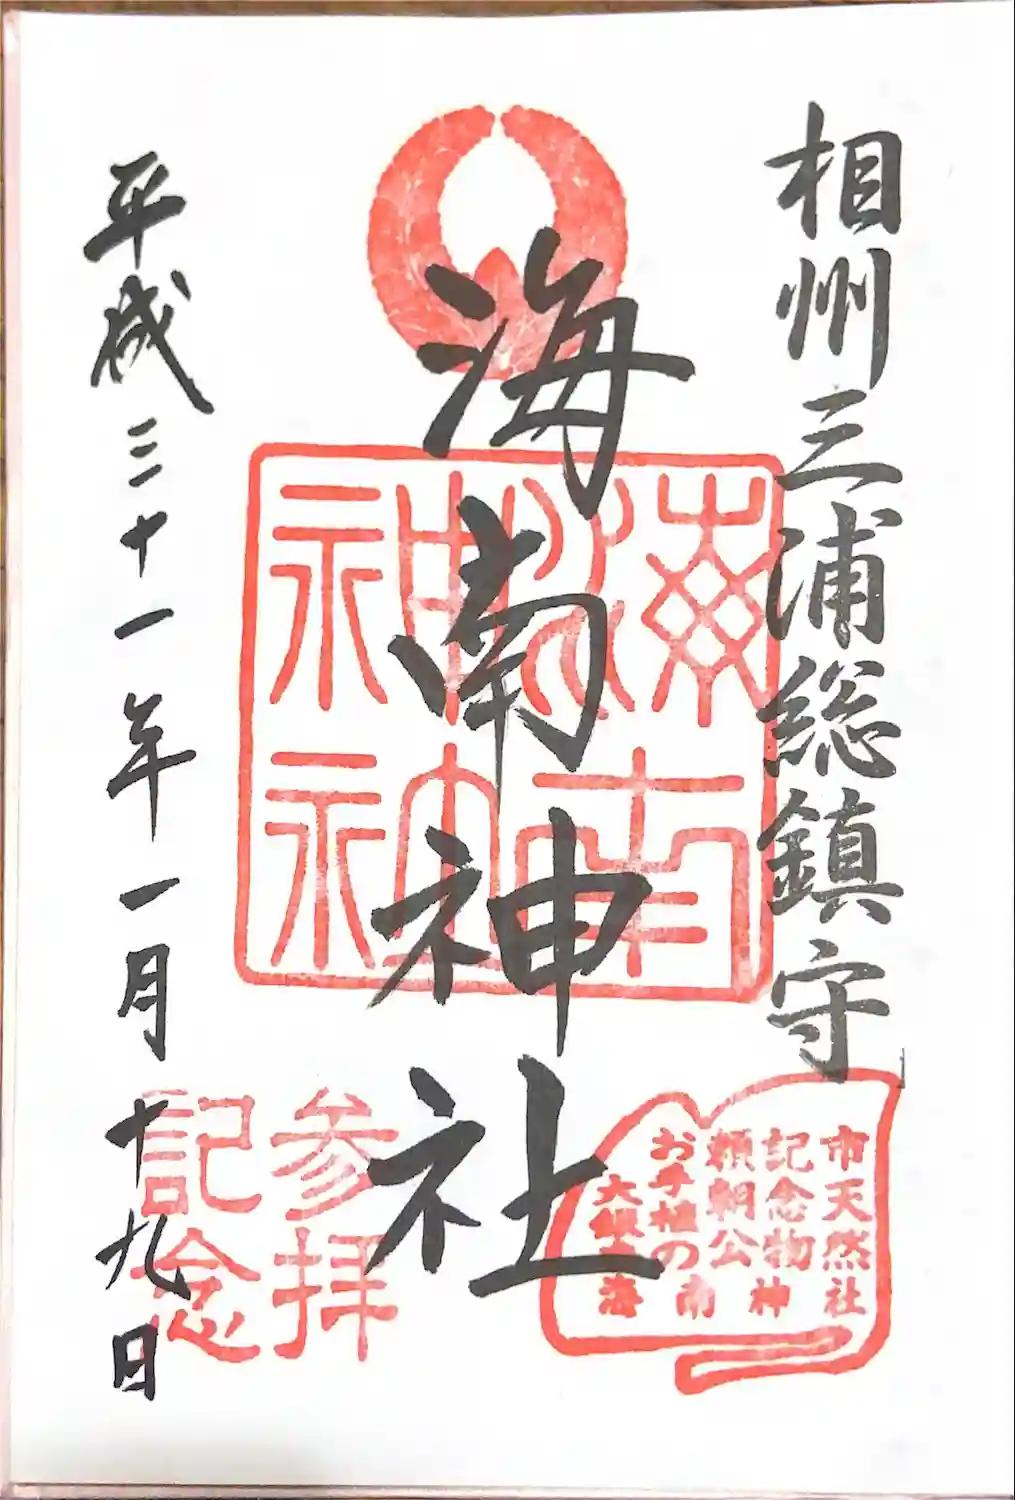 相州三浦総鎮守
海南神社
平成三十一年一月十九日
海南
神社
市天然
記念物
頼朝公
お手植の
大銀
海南神社
参拝
記念